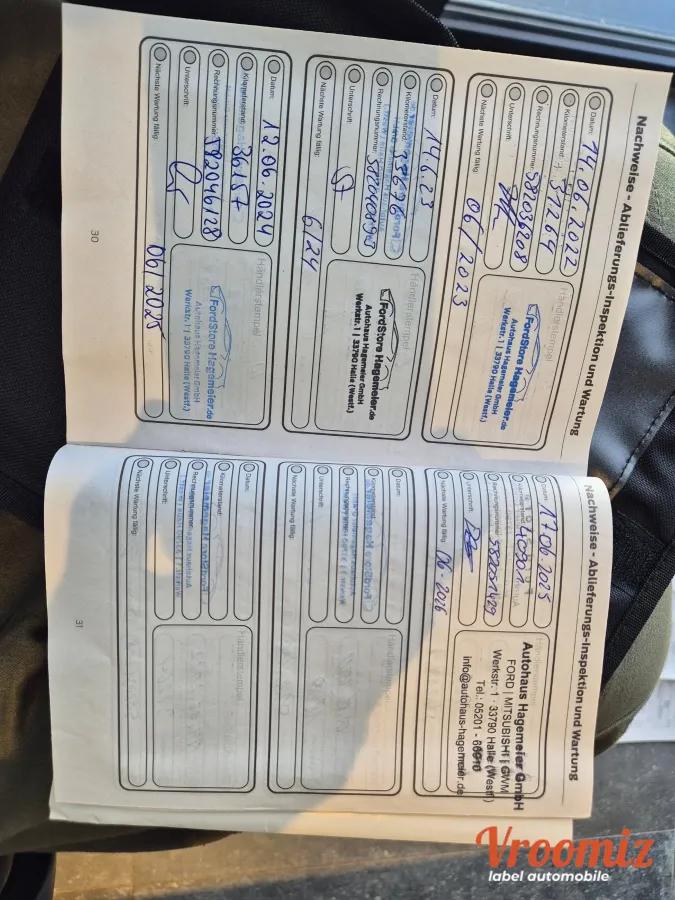 Nachweise - Ablieferungs-Inspektion und Wartung
Datum: 14.06.2022
Kilometerstand: 31264
Rechnungsnummer: 582036208
Unterschrift:
Nächste Wartung fällig: 06/2023
Händlerstempel
FordStore Hagemeier.de
Autohaus Hagemeier GmbH
Werkstr. 1 | 33790 Halle (Westf.)
Datum: 14.6.23
Kilometerstand:
Rechnungsnummer:
Unterschrift:
Nächste Wartung fällig: 6/24
Händlerstempel
FordStore Hagemeier.de
Autohaus Hagemeier GmbH
Werkstr. 1 | 33790 Halle (Westf.)
Datum: 12.06.2024
Kilometerstand: 36157
Rechnungsnummer: 582046128
Unterschrift:
Nächste Wartung fällig: 06/2025
Händlerstempel
FordStore Hagemeier.de
Autohaus Hagemeier GmbH
Werkstr. 1 | 33790 Halle (Westf.)
30
Nachweise - Ablieferungs-Inspektion und Wartung
Datum: 17.06.2025
Kilometerstand: 40901
Rechnungsnummer:
Unterschrift:
Nächste Wartung fällig: 06-2026
Händlerstempel
Autohaus Hagemeier GmbH
FORD | MITSUBISHI | GWM
Werkstr. 1 · 33790 Halle (Westf)
Tel.: 05201 -
info@autohaus-hagemeier.de
Datum:
Kilometerstand:
Rechnungsnummer:
Unterschrift:
Nächste Wartung fällig:
Händlerstempel
Datum:
Kilometerstand:
Rechnungsnummer:
Unterschrift:
Nächste Wartung fällig:
Händlerstempel
31
Vroomiz
label automobile